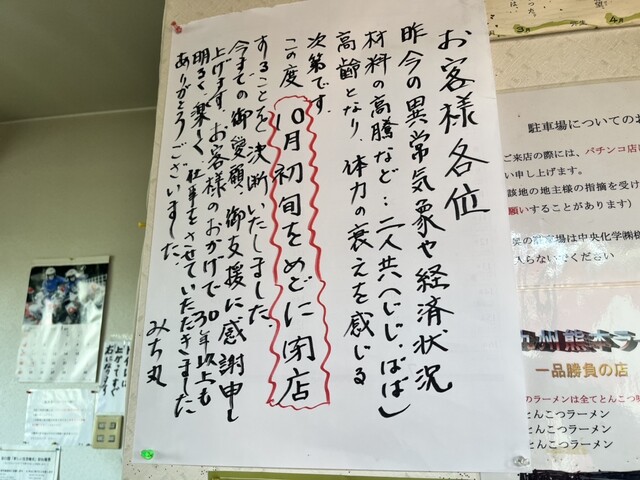 お客様各位
昨今の異常気象や経済状況
材料の高騰など…二人共(じじ、ばば)
高齢となり、体力の衰えを感じる
次第です。
この度10月初旬をめどに閉店
することを決断いたしました。
今までの御愛顧、御支援に感謝申し
上げます。お客様のおかげで30年以上も
明るく楽しく仕事をさせていただきました
ありがとうございました。
みち丸
駐車場についてのお
ご来店の際には、パチンコ店に
い申し上げます。
該地の地主様の指摘を受け
願いすることがあります)
駐車場は中央化学㈱様
入らないでください
九州熊本ラ
一品勝負の店
のラーメンは全てとんこつ
とんこつラーメン
とんこつラーメン
とんこつラーメン
3月
弥生
4月
10